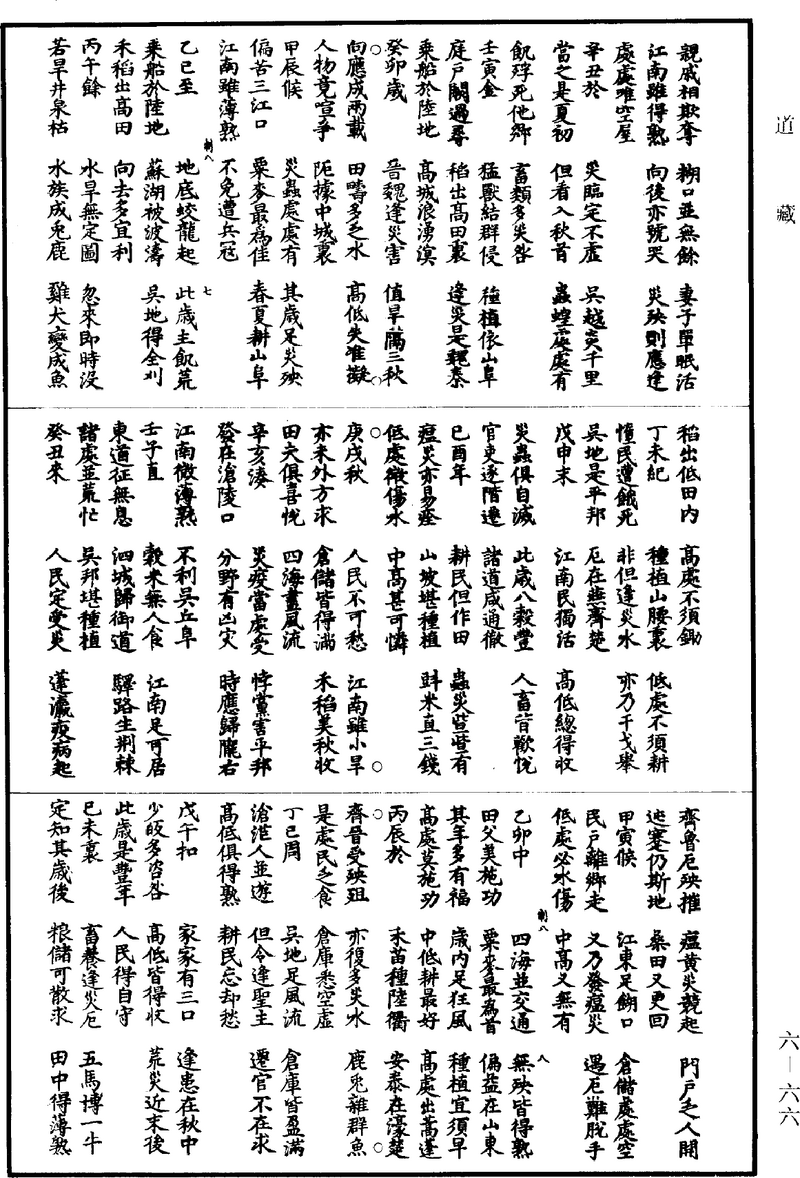 道藏
親戚相欺奪　糊口並無餘　妻子單眠活
江南雖得熟　向後亦號哭　災殃則應逢
處處唯空屋
辛丑於　災臨定不虛　吳越炎千里
當之是夏初　但看入秋首　蟲蝗處處有
飢殍死他鄉　畜類多災咎
壬寅金　猛獸結群侵　種植依山阜
庭戶闕過尋　稻出高田裏　逢災是魏秦
乘船於陸地　高城浪湧溟
癸卯歲　晉魏逢災害　值旱隔三秋
向應成兩載　田疇多乏水　高低失准擬
人物竟喧爭　阨據中城裏
甲辰候　災蟲處處有　其歲足災殃
偏苦三江口　粟麥最為佳　春夏耕山阜
江南雖薄熟　不免遭兵寇
制八　七
乙巳至　地底蛟龍起　此歲主飢荒
乘船於陸地　蘇湖被波濤　吳地得全刈
禾稻出高田　向去多宜利
丙午餘　水旱無定圖　忽來即時沒
若旱井泉枯　水族成兔鹿　雞犬變成魚
稻出低田內　高處不須鋤
丁未紀　種植山腰裏　低處不須耕
憧民遭餓死　非但逢災水　亦乃干戈舉
吳地是平邦　厄在燕齊楚
戊申末　江南民獨活　高低總得收
災蟲俱自滅　此歲八穀豐　人畜皆歡悅
官吏逐階遷　諸道咸通徹
己酉年　耕民但作田　蟲災暫暫有
瘟災亦易痊　山坡堪種植　㪷米直三錢
低處微傷水　中高甚可憐
庚戌秋　人民不可愁　江南雖小旱
亦未外方求　倉儲皆得滿　禾稻美秋收
田夫俱喜悅　四海盡風流
辛亥湊　炎疫當處受　悖黨害平邦
發在滄陵口　分野有凶灾　時應歸隴右
江南微薄熟　不利吳丘阜
壬子直　穀米無人食　江南足可居
東道征無息　泗城歸御道　驛路生荊棘
諸處並荒忙　吳邦堪種植
癸丑來　人民定受災　蓬瀛疫病起
齊魯厄殃摧　瘟黃災競起　門戶乏人開
迍蹇仍斯地　桑田又更回
甲寅候　江東足餬口　倉儲處處空
民戶離鄉走　又乃發瘟災　遇厄難脫手
低處必水傷　中高又無有
制八　八
乙卯中　四海並交通　無殃皆得熟
田父美施功　粟麥最為首　偏益在山東
其年多有福　歲內足狂風　種植宜須早
高處莫施功　中低耕最好　高處出蒿蓬
丙辰於　禾苗種陸衢　安泰在濠楚
齊晉受殃殂　亦復多災水　鹿兔雜群魚
是處民乏食　倉庫悉空虛
丁巳周　吳地足風流　倉庫皆盈滿
滄淮人並遊　但令逢聖主　遷官不在求
高低俱得熟　耕民忘却愁
戊午扣　家家有三口　逢患在秋中
少皈多咨咎　高低皆得收　荒災近末後
此歲是豐年　人民得自守
己未裏　畜養逢災厄　五馬博一牛
定知其歲後　粮儲可散求　田中得薄熟
六—六六